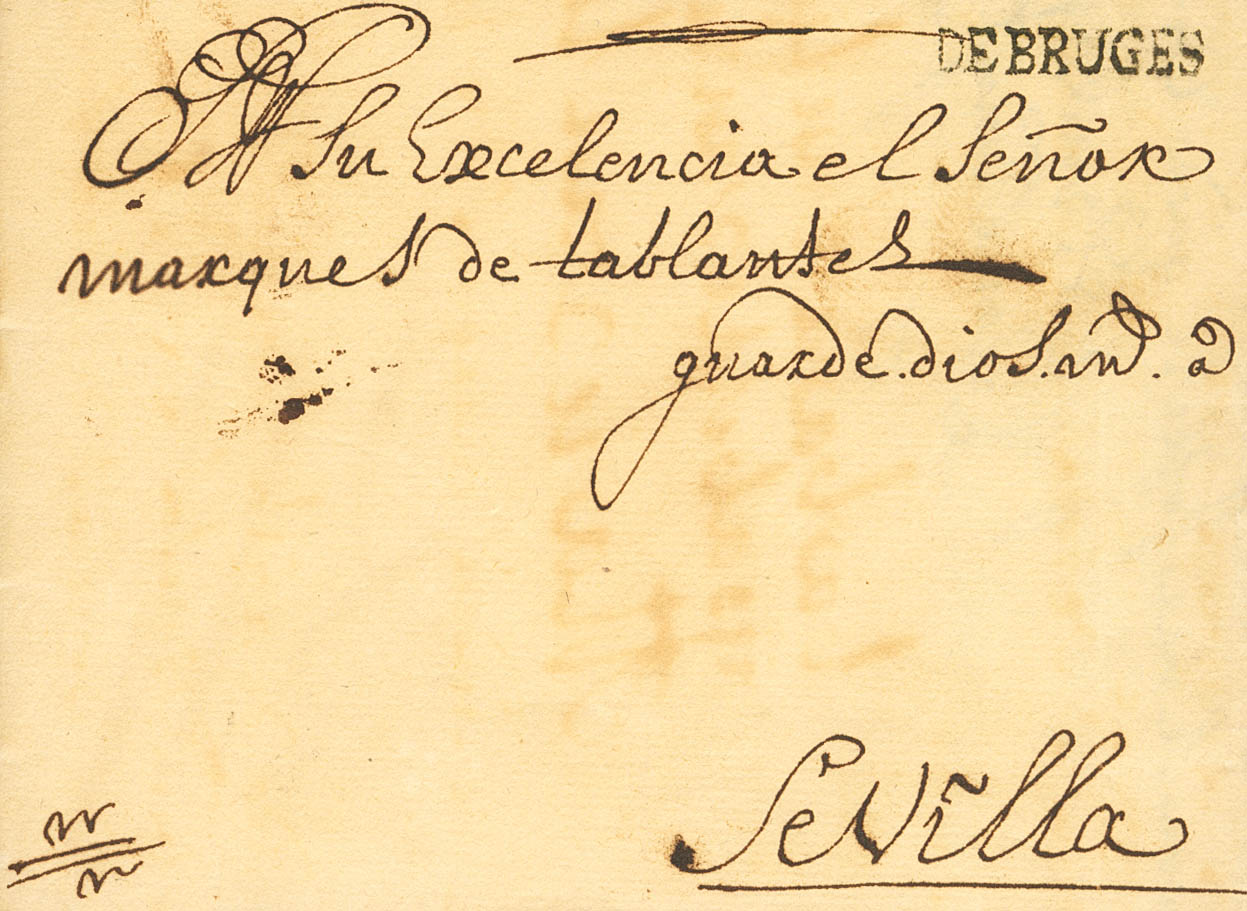 DE BRUGES
A Su Excelencia el Señor
marques de tablantes
guarde. dios. md. a
Sevilla